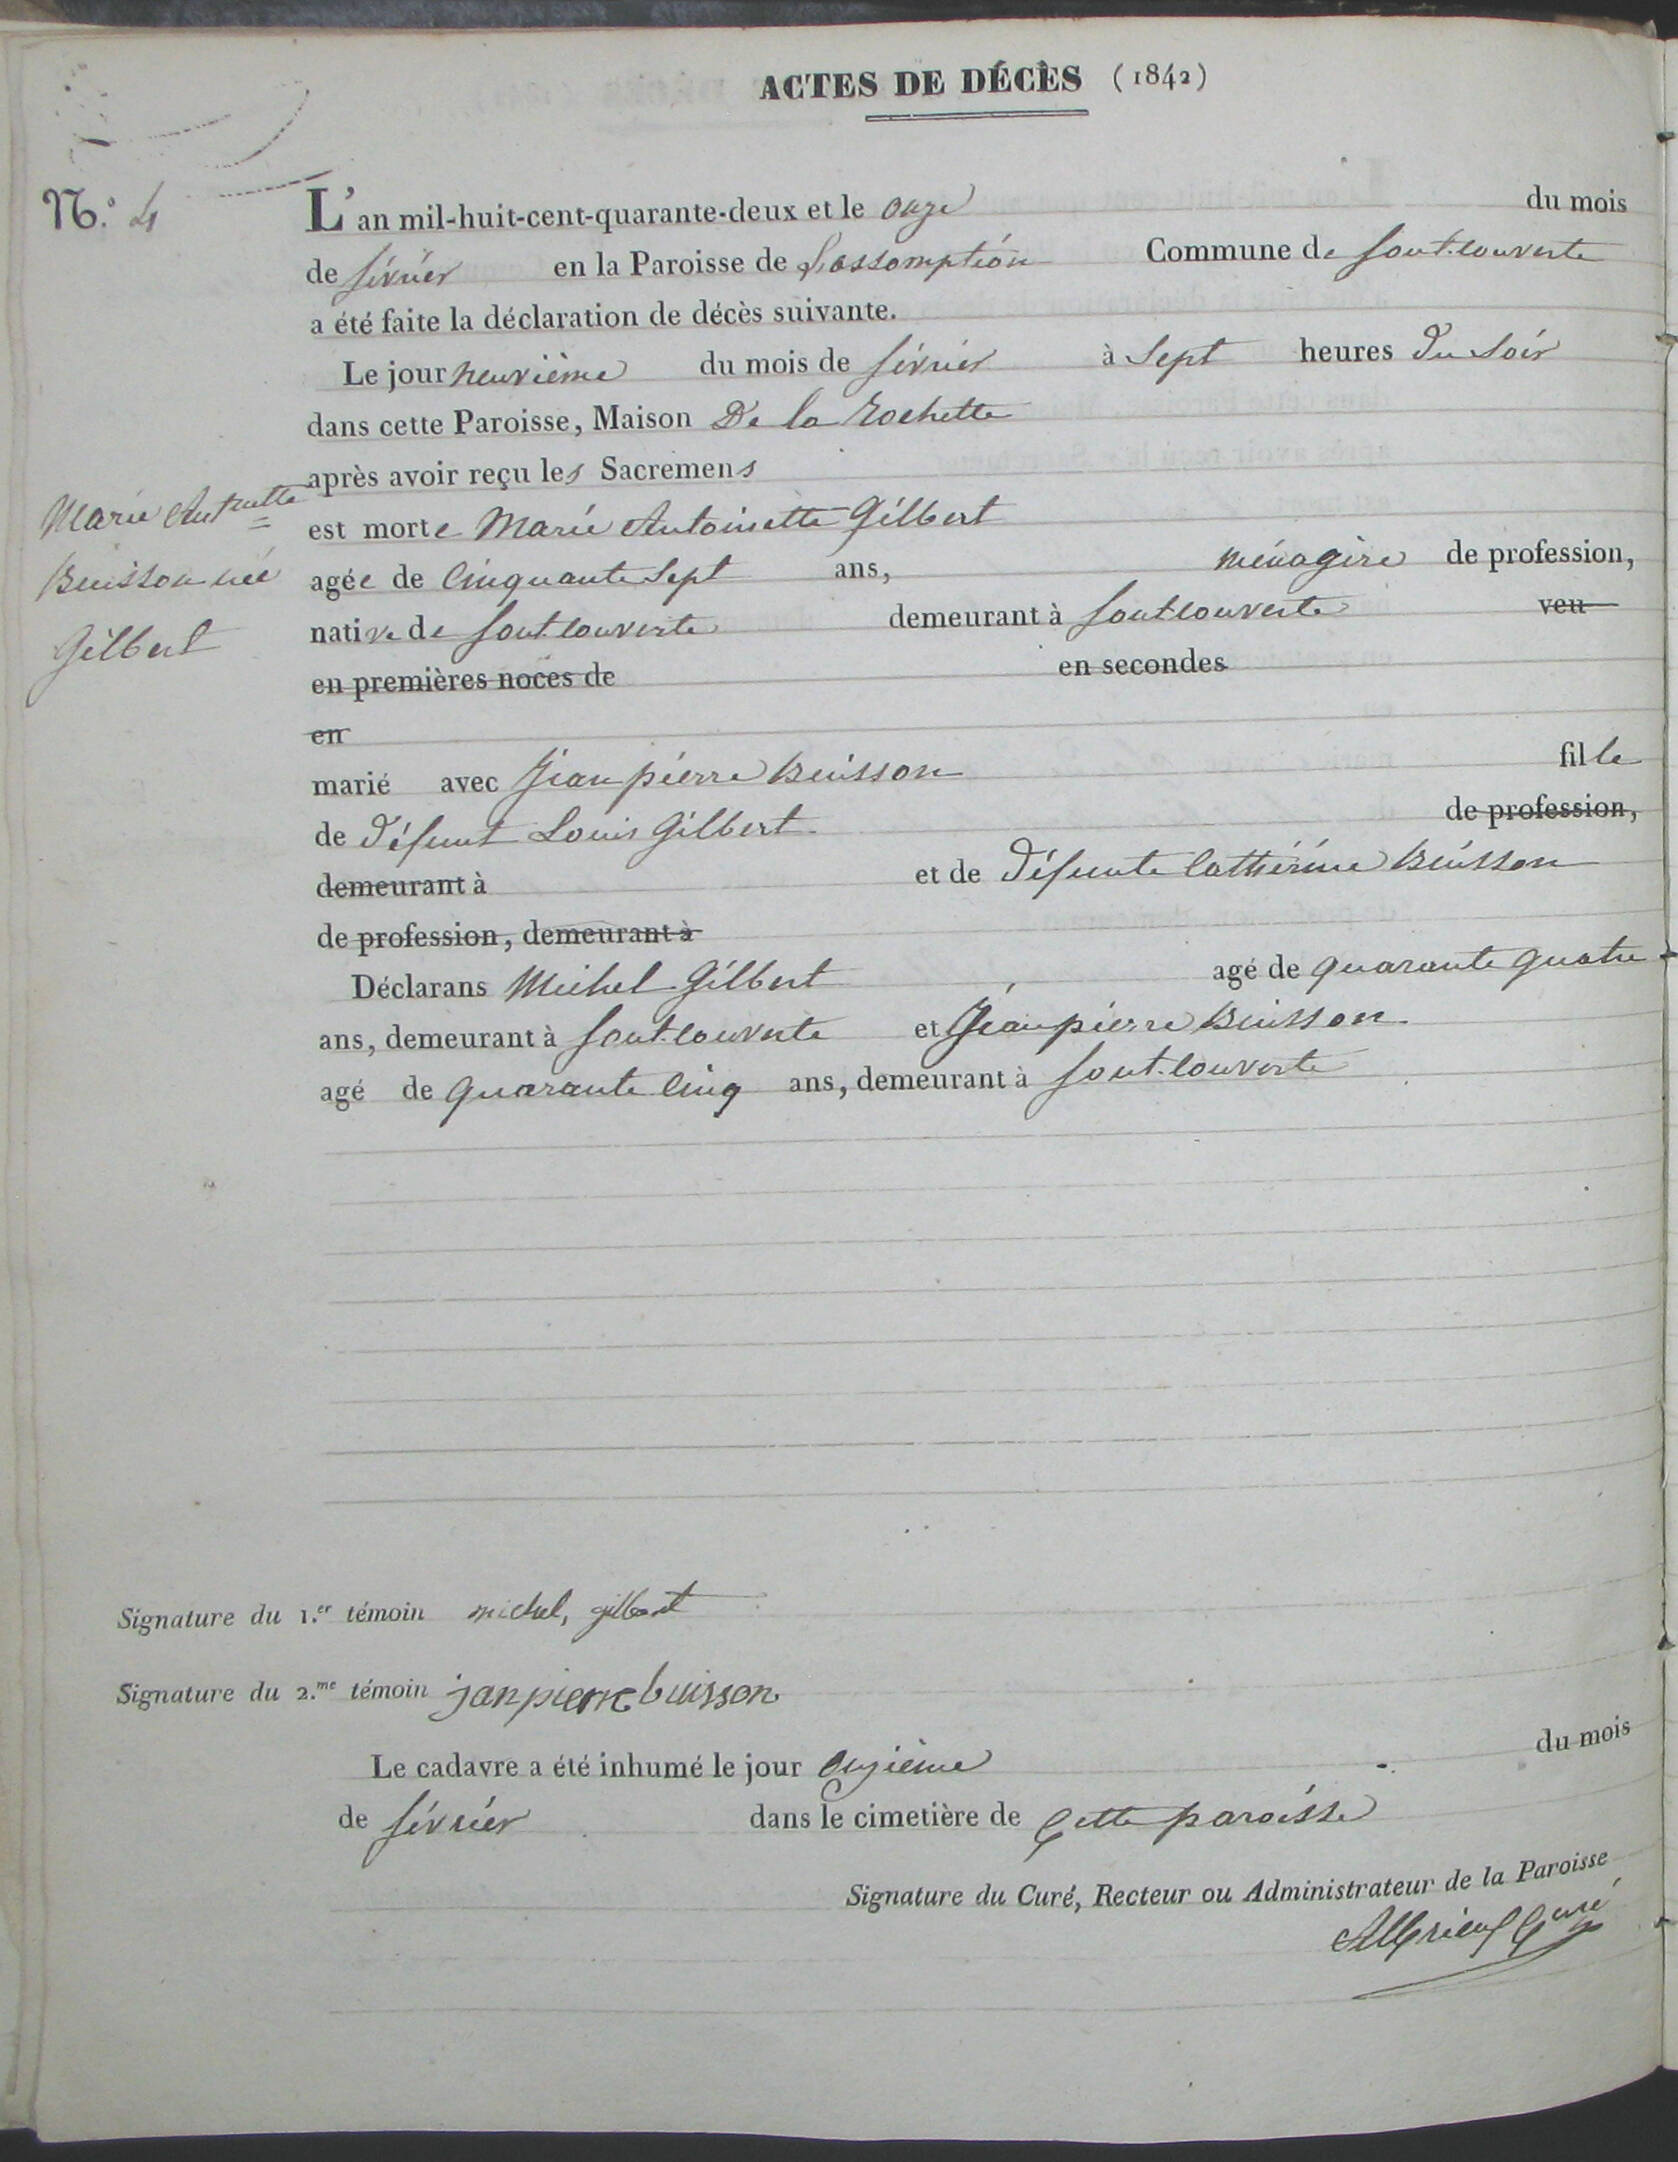 ACTES DE DÉCÈS (1842)
N.o 4
L'an mil-huit-cent-quarante-deux et le onze du mois
de février en la Paroisse de L'assomption Commune de font-couverte
a été faite la déclaration de décès suivante.
Le jour neuvième du mois de février à sept heures du soir
dans cette Paroisse, Maison De la Rochette
après avoir reçu les Sacremens
Marie Antnette
Buisson née
Gilbert
est morte Marie Antoinette Gilbert
agée de Cinquante Sept ans, ménagère de profession,
native de font-couverte demeurant à fontcouverte veu
en premières noces de en secondes
en
marié avec Jean pierre Buisson fille
de défunt Louis Gilbert de profession,
demeurant à et de défunte Cathérine Buisson
de profession, demeurant à
Déclarans Michel Gilbert agé de quarante quatre
ans, demeurant à font-couverte et Jean pierre Buisson
agé de quarante Cinq ans, demeurant à font-couverte
Signature du 1.er témoin michel, gilbert
Signature du 2.me témoin jan pierre buisson
Le cadavre a été inhumé le jour onzième du mois
de février dans le cimetière de Cette paroisse
Signature du Curé, Recteur ou Administrateur de la Paroisse
Curé